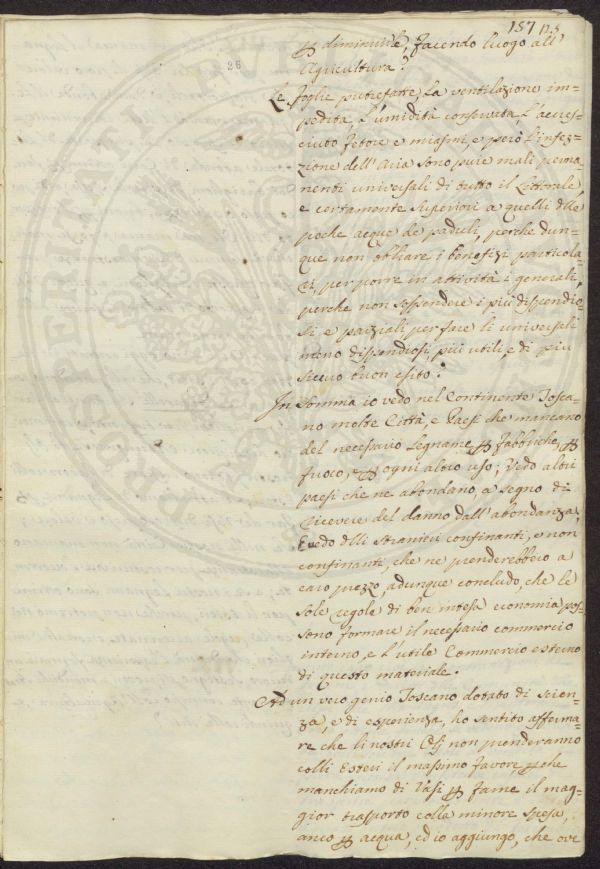 157 125
26
p diminuirle, facendo luogo all'
Agricoltura?
Le foglie putrefatte, la ventilazione im=
pedita, l'umidità conservata, l'accres=
ciuto fetore e miasmi, e però l'infe=
zione dell'Aria sono pure mali perma=
nenti universali di tutto il Littorale,
e certamente superiori a quelli delle
poche acque de paduli, perche dun=
que non obliare i benefizi particola=
ri, per porre in attività i generali,
perche non sospendere i più dispendio=
si e parziali per fare li universali
meno dispendiosi, più utili, e di più
sicuro buon esito?
In somma io vedo nel Continente Tosca=
no molte Città, e Paesi che mancano
del necessario Legname p fabbriche, p
fuoco, e p ogni altro uso; Vedo altri
paesi che ne abondano a segno di
ricevere del danno dall'abondanza,
E vedo delli stranieri confinanti, e non
confinanti, che ne prenderebbero a
caro prezzo, adunque concludo, che le
sole regole di ben intesa economia pos=
sono formare il necessario commercio
interno, e l'utile Commercio esterno
di questo materiale.
Ad un vero genio Toscano dotato di scien=
za, e di esperienza, ho sentito afferma=
re che li nostri Olj non prenderanno
colli Esteri il massimo favore, p che
manchiamo di Vasi p farne il mag=
gior trasporto colla minore spesa,
anco p acqua, ed io aggiungo, che ove